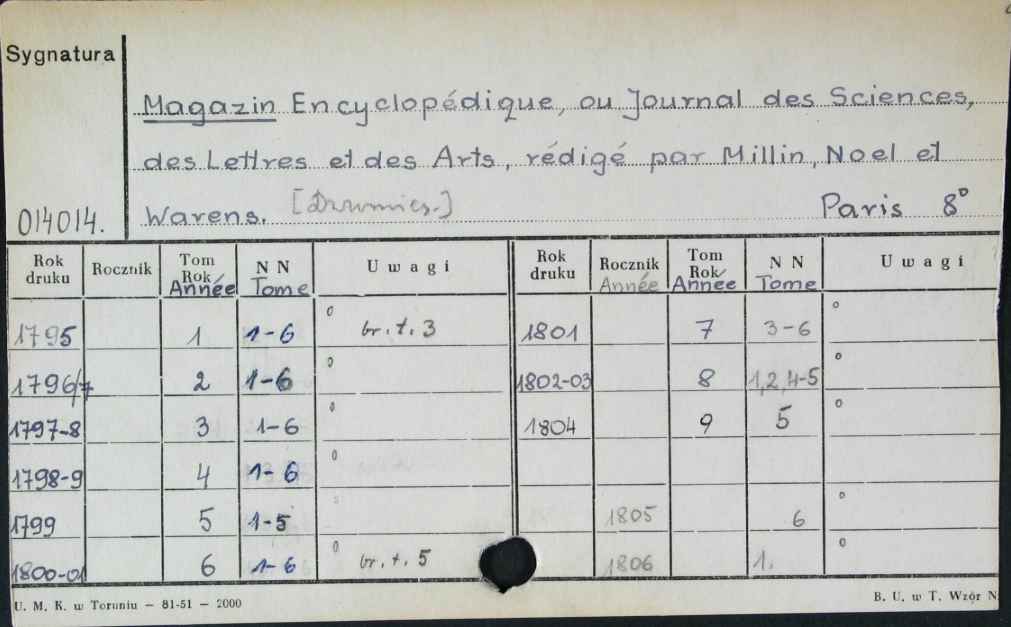 Sygnatura
Magazin Encyclopédique, ou Journal des Sciences,
des Lettres et des Arts, rédigé par Millin, Noel et
014014. Warens. Paris 8°
Rok druku Rocznik Tom Rok Année N N Tome Uwagi Rok druku Rocznik Année Tom Rok Année N N Tome Uwagi
1795 1 1-6 br. t. 3 1801 7 3-6
1796/7 2 1-6 1802-03 8 1,2,4-5
1797-8 3 1-6 1804 9 5
1798-9 4 1-6
1799 5 1-5 1805 6
1800-01 6 1-6 br. t. 5 1806 1.
U. M. K. w Toruniu — 81-51 — 2000 B. U. w T. Wzór N